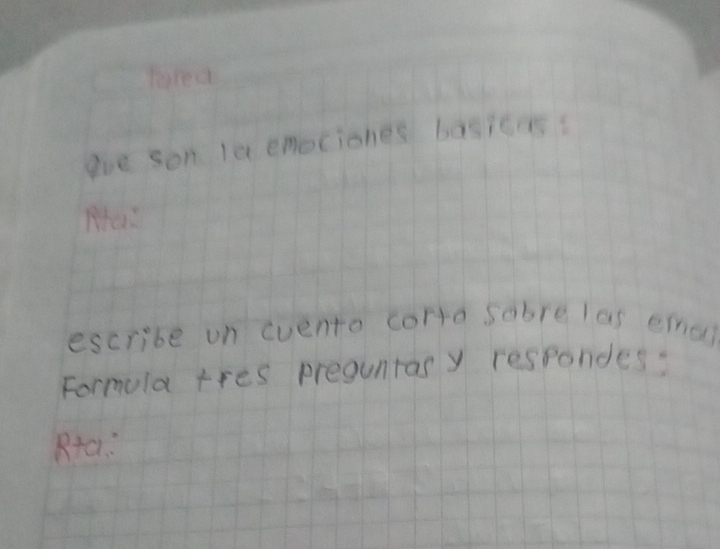 Tarea
Que son la emociones basicas:
Rta:
escribe un cuento corto sobre las emo
Formula tres preguntas y respondes:
Rta: